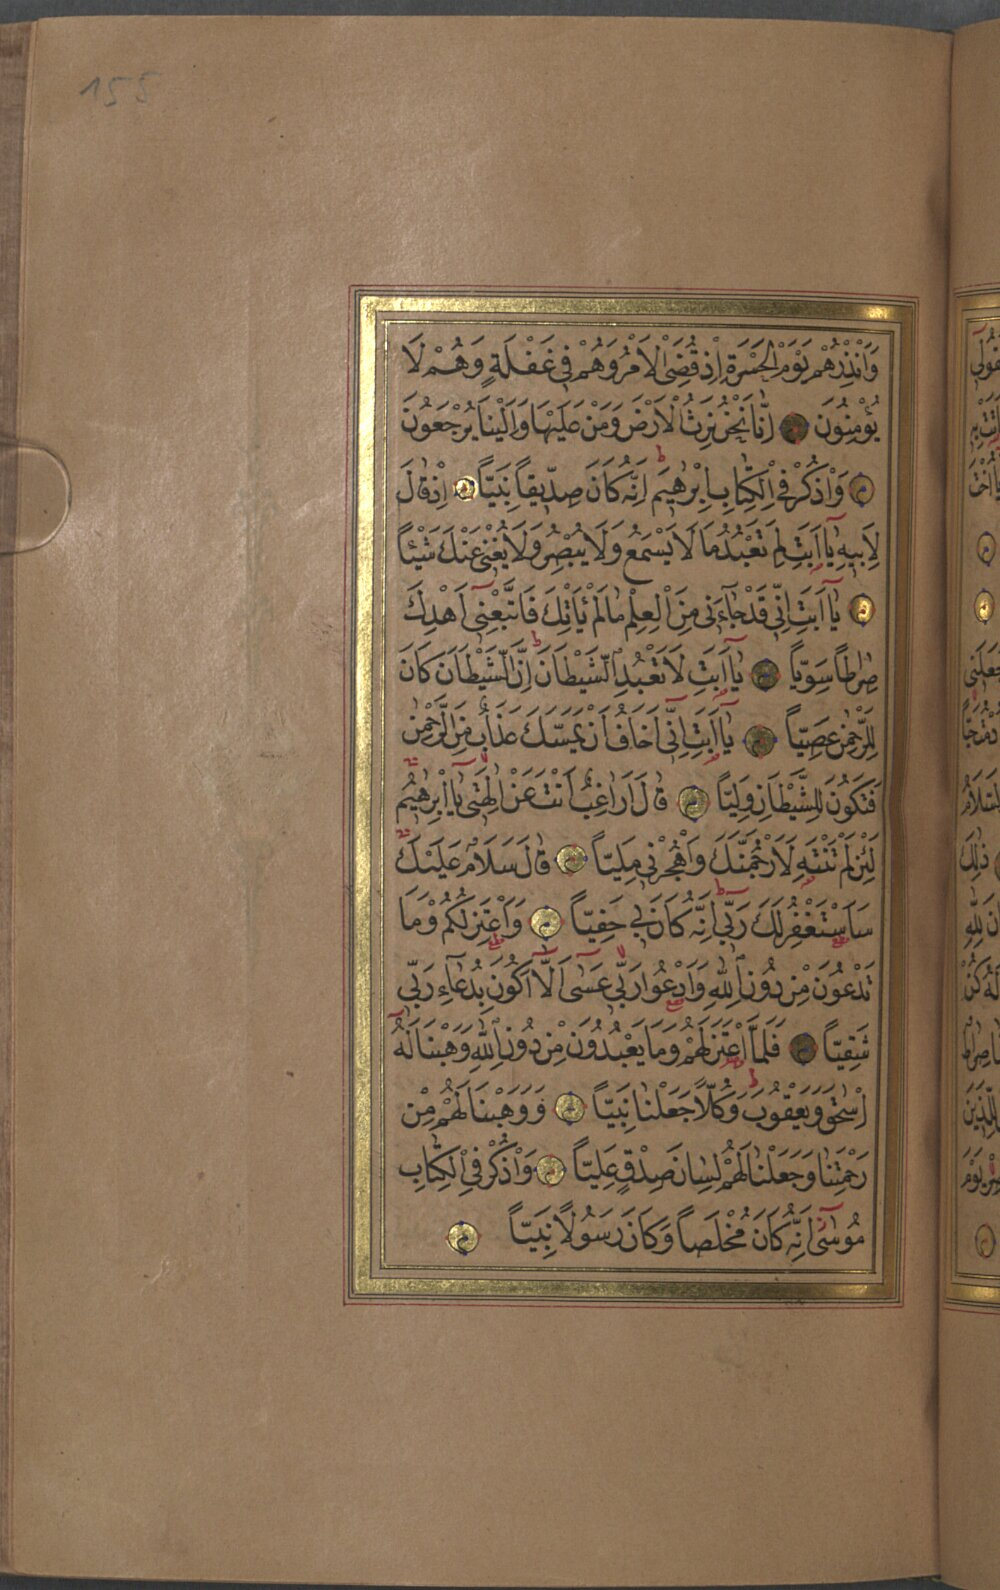 وَاَنْذِرْهُمْ يَوْمَ الْحَسْرَةِ اِذْ قُضِىَ الْاَمْرُ وَهُمْ فِى غَفْلَةٍ وَهُمْ لَا
يُؤْمِنُونَ اِنَّا نَحْنُ نَرِثُ الْاَرْضَ وَمَنْ عَلَيْهَا وَاِلَيْنَا يُرْجَعُونَ
وَاذْكُرْ فِى الْكِتَابِ اِبْرٰهِيمَ اِنَّهُ كَانَ صِدِّيقاً نَبِيّاً اِذْ قَالَ
لِاَبِيهِ يَٓا اَبَتِ لِمَ تَعْبُدُ مَا لَا يَسْمَعُ وَلَا يُبْصِرُ وَلَا يُغْنِى عَنْكَ شَيْئاً
يَٓا اَبَتِ اِنِّى قَدْ جَٓاءَنِى مِنَ الْعِلْمِ مَا لَمْ يَأْتِكَ فَاتَّبِعْنِٓى اَهْدِكَ
صِرَاطاً سَوِيّاً يَٓا اَبَتِ لَا تَعْبُدِ الشَّيْطَانَ اِنَّ الشَّيْطَانَ كَانَ
لِلرَّحْمٰنِ عَصِيّاً يَٓا اَبَتِ اِنِّٓى اَخَافُ اَنْ يَمَسَّكَ عَذَابٌ مِنَ الرَّحْمٰنِ
فَتَكُونَ لِلشَّيْطَانِ وَلِيّاً قَالَ اَرَاغِبٌ اَنْتَ عَنْ اٰلِهَتِى يَٓا اِبْرٰهِيمُ
لَئِنْ لَمْ تَنْتَهِ لَاَرْجُمَنَّكَ وَاهْجُرْنِى مَلِيّاً قَالَ سَلَامٌ عَلَيْكَ
سَاَسْتَغْفِرُ لَكَ رَبِّٓى اِنَّهُ كَانَ بِى حَفِيّاً وَاَعْتَزِلُكُمْ وَمَا
تَدْعُونَ مِنْ دُونِ اللّٰهِ وَاَدْعُوا رَبِّى عَسٰٓى اَلَّٓا اَكُونَ بِدُعَٓاءِ رَبِّى
شَقِيّاً فَلَمَّا اعْتَزَلَهُمْ وَمَا يَعْبُدُونَ مِنْ دُونِ اللّٰهِ وَهَبْنَا لَهُٓ
اِسْحٰقَ وَيَعْقُوبَ وَكُلّاً جَعَلْنَا نَبِيّاً وَوَهَبْنَا لَهُمْ مِنْ
رَحْمَتِنَا وَجَعَلْنَا لَهُمْ لِسَانَ صِدْقٍ عَلِيّاً وَاذْكُرْ فِى الْكِتَابِ
مُوسٰٓى اِنَّهُ كَانَ مُخْلَصاً وَكَانَ رَسُولاً نَبِيّاً